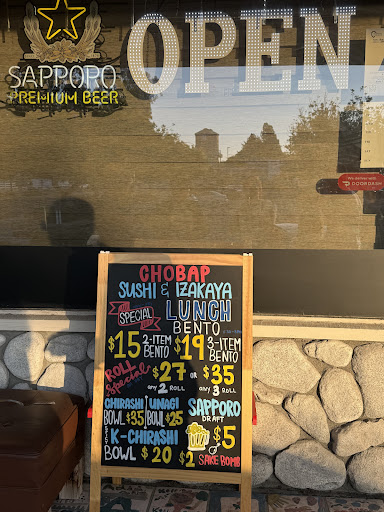 SAPPORO
PREMIUM BEER
OPEN
DOORDASH
CHOBAP
SUSHI & IZAKAYA
SPECIAL LUNCH
BENTO
$15 2-ITEM BENTO $19 3-ITEM BENTO
ROLL Special $27 OR $35
any 2 ROLL any 3 ROLL
CHIRASHI BOWL $35 UNAGI BOWL $25
SAPPORO
DRAFT
$5
SPICY K-CHIRASHI
BOWL $20
$2 SAKE BOMB